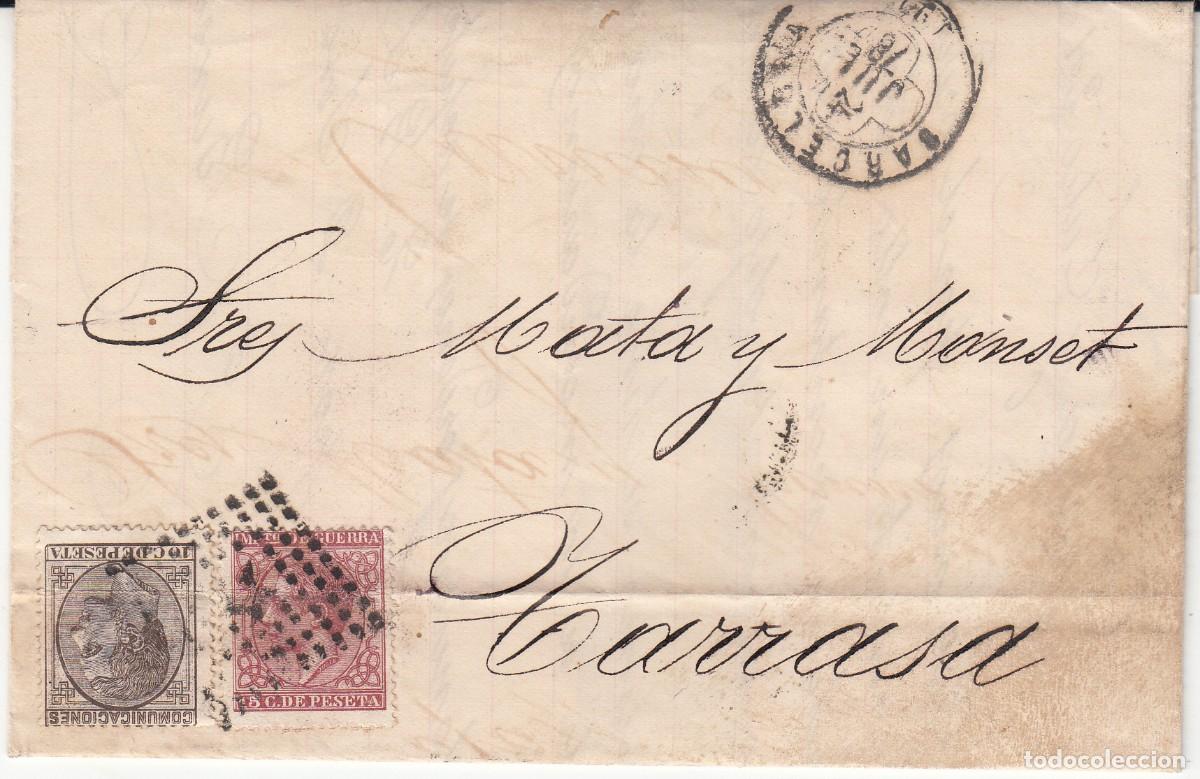 BARCELONA
JUL
Sres Mata y Manset
Tarrasa
10 C. DE PESETA
COMUNICACIONES
IMPTO DE GUERRA
15 C. DE PESETA
todocoleccion